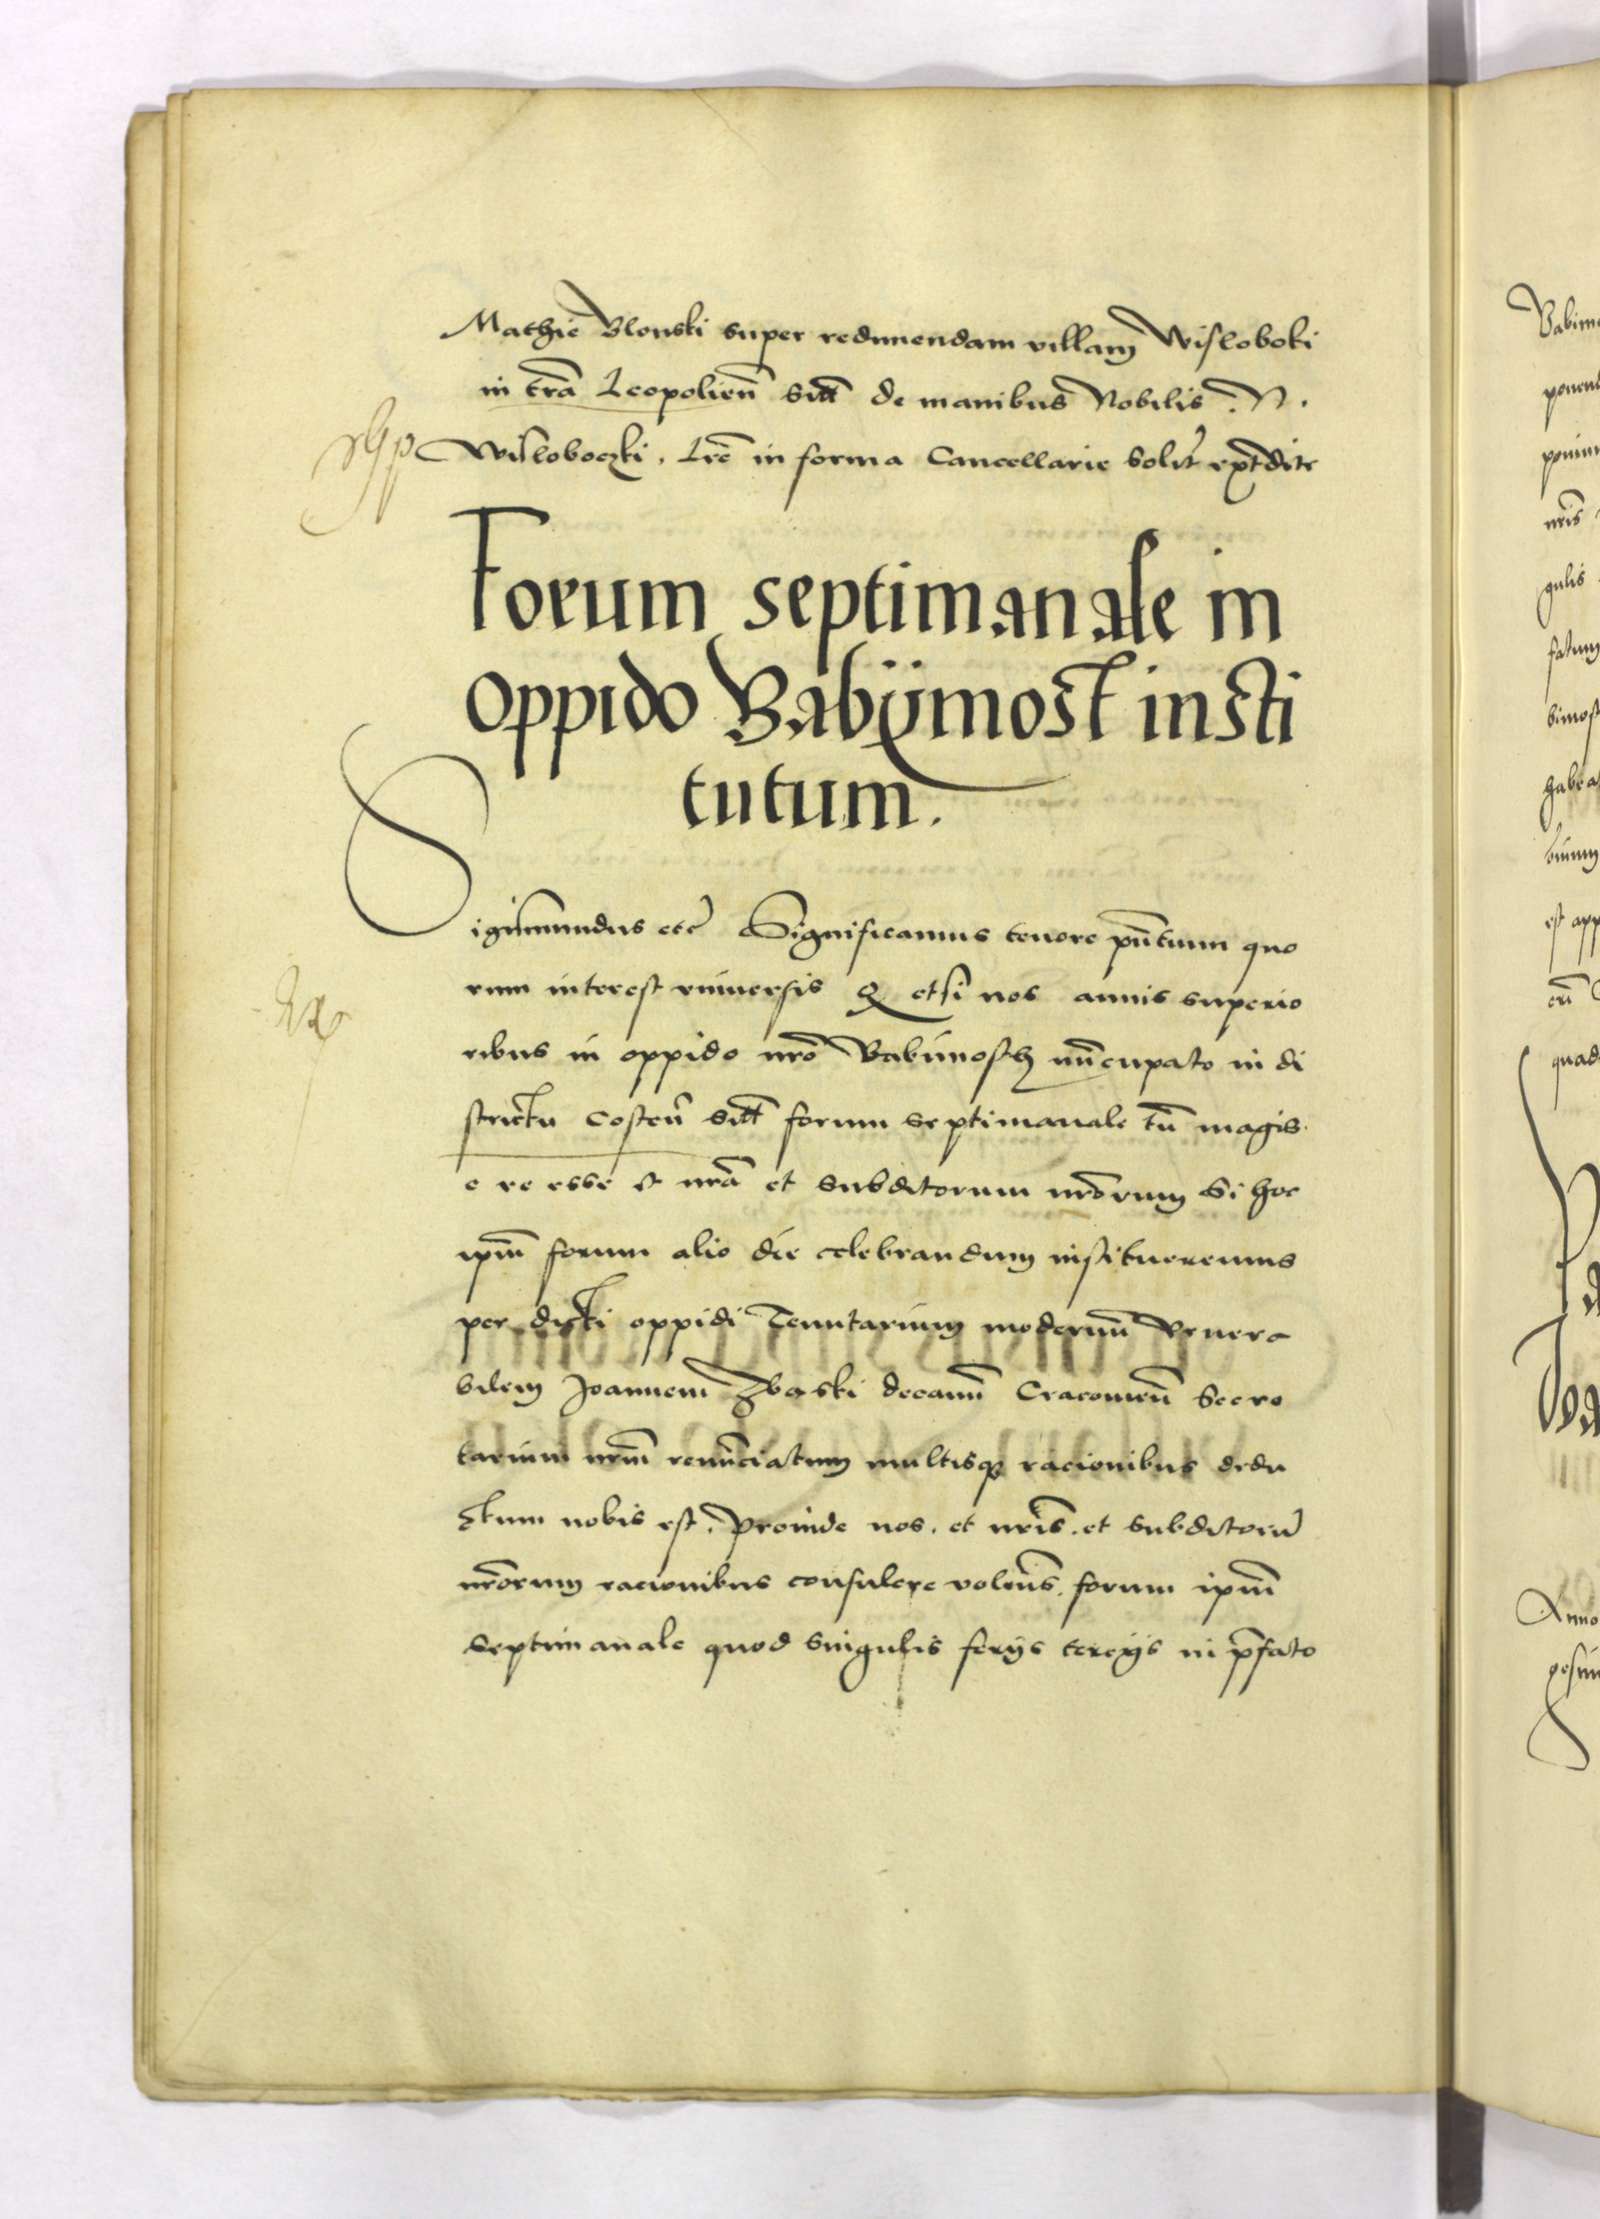 Mathie Blonski super redimendam villam Wisloboki
in trã Leopolieñ sitã de manibus Nobilis . N .
Wisloboczki . Lrẽ in forma Cancellarie solit̃
Forum septimanale in
oppido Babÿmost insti
tutum .
Sigismundus etc̃ Significamus tenore pñtium quo
rum interest universis q etsi nos annis superio
ribus in oppido nrõ Babimosth nũcupato in di
strictu Costeñ forum septimanale tñ magis
e re esse nrã et subditorum nrõrum si hoc
ipm̃ forum alio die celebrandum institueremus
per dicti oppidi Tenutarium modernũ Venera
bilem Joannem Zbaski decanũ Cracovieñ Secre
tarium nrm̃ renũciatum multisq racionibus dedu
ctum nobis est . Proinde nos . et nris̃ . et subditorũ
nrõrum racionibus consulere volens̃ . forum ipm̃
septimanale quod singulis ferÿs tercÿs in p̃fato
Babimo
nris̃
gulis
fatum
bimost
habeat
est app
quad
Anno